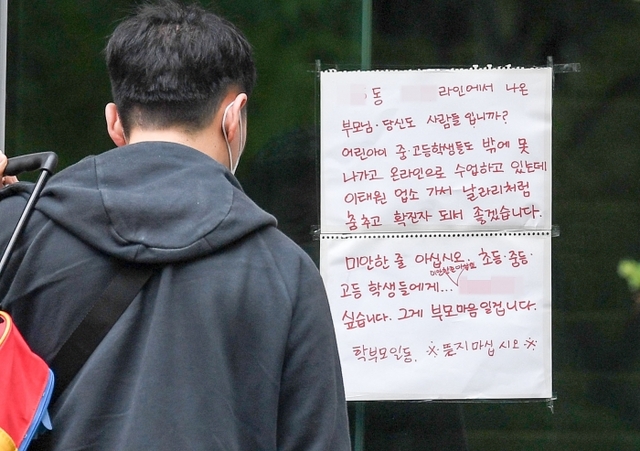 동 라인에서 나온
부모님·당신도 사람들 입니까?
어린아이 중·고등학생들도 밖에 못
나가고 온라인으로 수업하고 있는데
이태원 업소 가서 날라리처럼
춤추고 확진자 되서 좋겠습니다.
미안한 줄 아십시오. 초등·중등·
고등 학생들에게...
싶습니다. 그게 부모마음일겁니다.
학부모일동. ※뜯지마십시오※